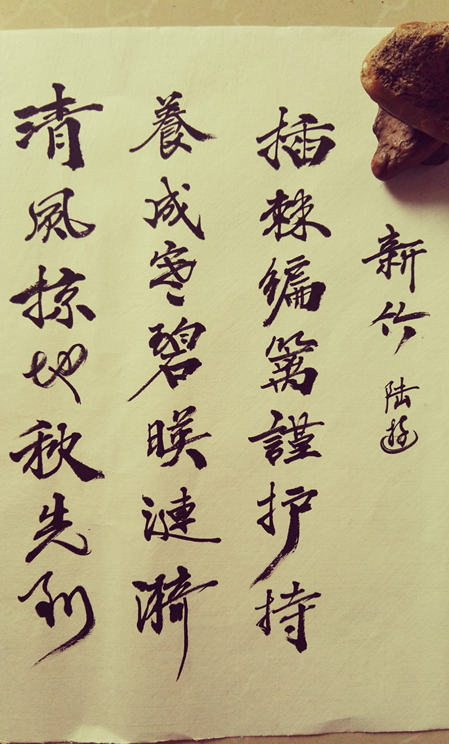 新竹 陆游
插棘編篱謹护持
養成寒碧暎漣漪
清風掠地秋先到